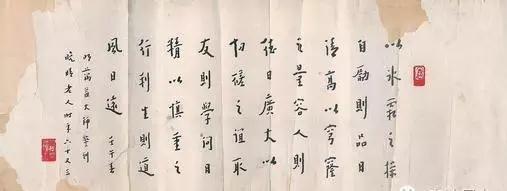 以冰霜之操
自勵則品日
清高以穹窿
之量容人則
德日廣大以
切磋之誼取
友則學問日
精以慎重之
行利生則道
風日遠 壬午春
明蕅益大師警訓
晚晴老人時年六十又三